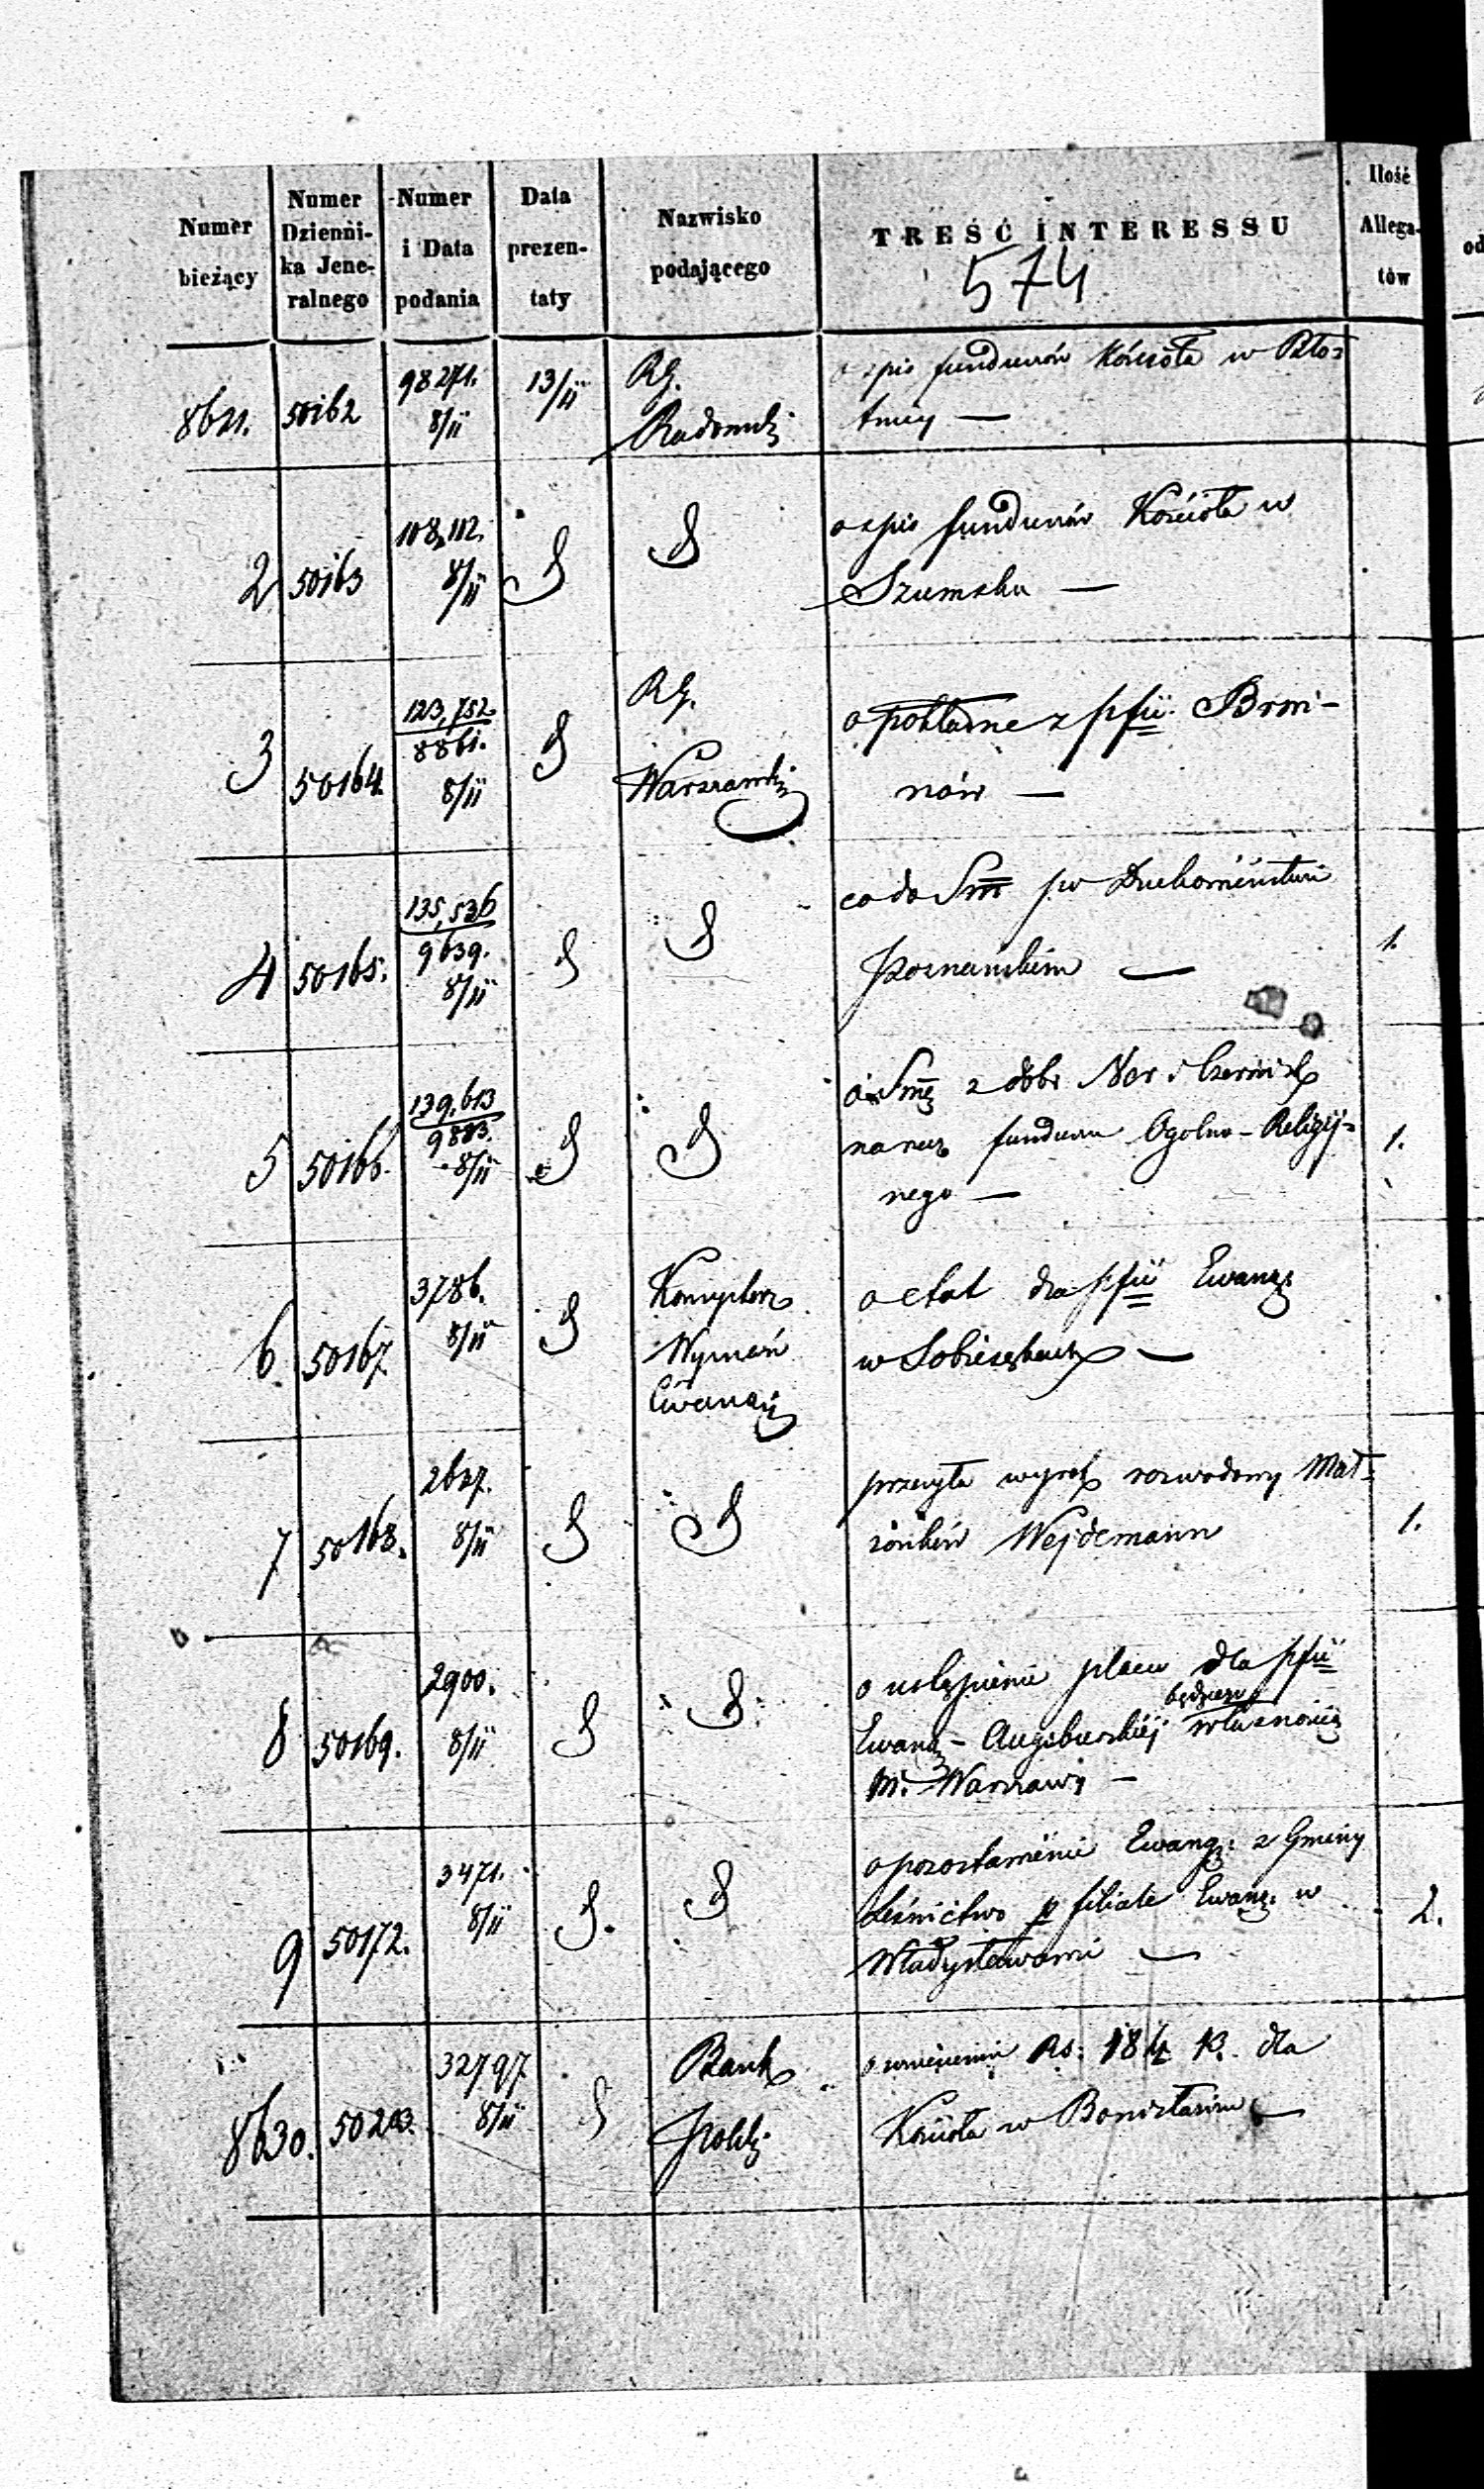 Numer bieżący
Numer Dzienni- ka Jene- ralnego
Numer i Data podania
Data prezen- taty
Nazwisko podającego
TREŚĆ INTERESSU
Ilość Allega- tów
574
8621. 50162 98271. 8/11 13/11 RG. Radomski
o spis funduszów Kościoła w
tnicy —
2 50163 108,112. 8/11
o spis funduszów Kościoła w
Szumsku —
3 50164 123,752. 8861. 8/11 RG. Warszawski
o pokładne z pfii Broni-
nów —
4 50165. 135,526 9639. 8/11
co do Sm po Duchowieństwie
Poznańskim — 1.
5 50166. 139,613 9883. 8/11
z dóbr Ner i
na rzecz funduszu Ogolno-Religij-
nego — 1.
6 50167 3786. 8/11 Konsystorz Wyznań Ewang
o etat dla pfii Ewang:
w Sobieskach —
7 50168. 2627. 8/11
przesyła wyrok rozwodowy Mał-
żonków Wejdemann 1.
8 50169. 2900. 8/11
o ustąpienie placu dla pfii
Ewang-Augsburskiéj będącego własnością
m. Warszawy —
9 50172. 3471. 8/11
o pozostawienie Ewang: z Gminy
Leśnictwo p filiale Ewang. w
Władysławowie — 2.
8630. 50203. 32797 8/11 Bank Polski
o wniesieniu Rs: 184 k. dla
Kościoła w —